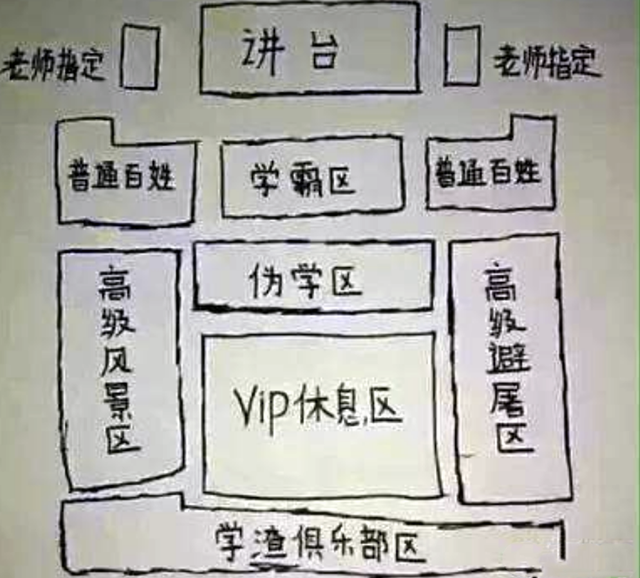 老师指定
讲台
老师指定
普通百姓
学霸区
普通百姓
伪学区
高级风景区
高级避屠区
Vip休息区
学渣俱乐部区